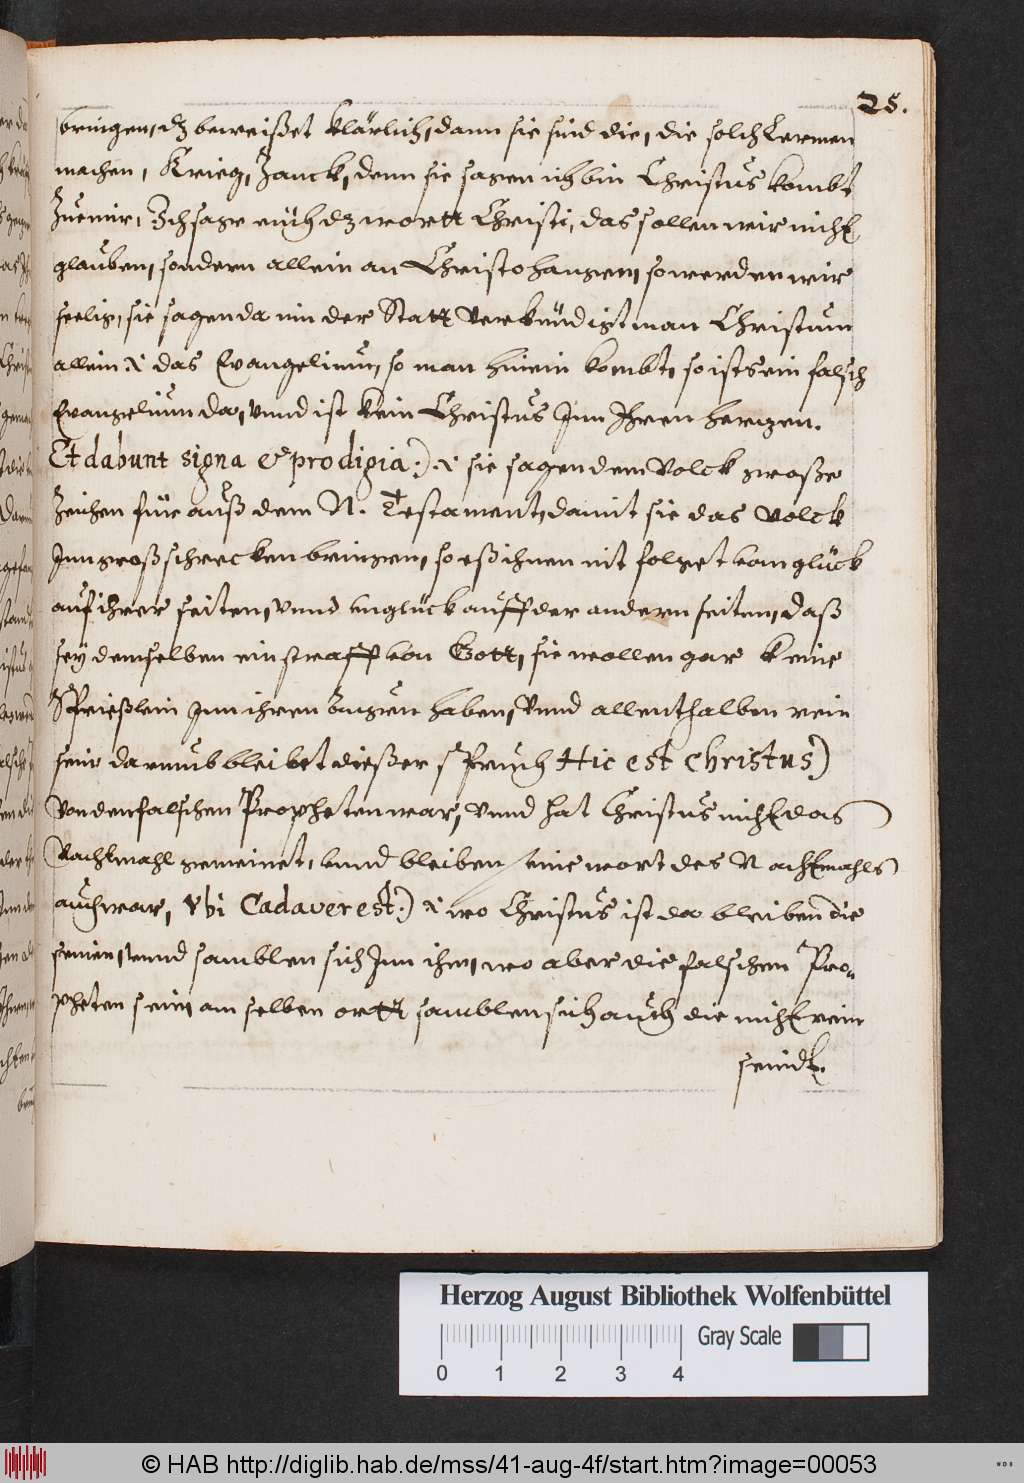 25.
bringen, dz beweißet klärlich, dann sie sind die, die solch Lermen
machen, Krieg, Zanck, denn sie sagen ich bin Christus kombt
Zue mir, Ich sage euch dz wortt Christi, das sollen wir nicht
glauben, sondern allein an Christo hangen, so werden wir
seelig, sie sagen da inn der Statt verkündigt man Christum
allein .i. das Evangelium, so man hinein kombt, so ists ein falsch
Evangelium da, vnnd ist kein Christus Inn Ihren hertzen.
Et dabunt signa & prodigia:) .i. sie sagen dem Volck große
Zeichen für auß dem N. Testament, damit sie das Volck
Inn groß schrecken bringen, so eß ihnen nit folget vom glück
auf ihrer seiten, vnnd vnglück auff der andern seiten, daß
sey demselben ein straff von Gott, sie wollen gar keine
Sprießlein Inn ihren augen haben, vnnd allenthalben rein
sein darumb bleibet dießer spruch Hic est Christus)
von den falschen Propheten war, vnnd hat Christus nicht das
Nachtmahl gemeinet, vnnd bleiben seine wort des Nachtmahls
auch war, Vbi Cadaver est:) .i. wo Christus ist da bleiben die
seinen, vnnd samblen sich Inn ihm, wo aber die falschen Pro-
pheten sein, am selben ortt samblen sich auch die nicht rein
seindt.
Herzog August Bibliothek Wolfenbüttel
Gray Scale
0 1 2 3 4
© HAB http://diglib.hab.de/mss/41-aug-4f/start.htm?image=00053